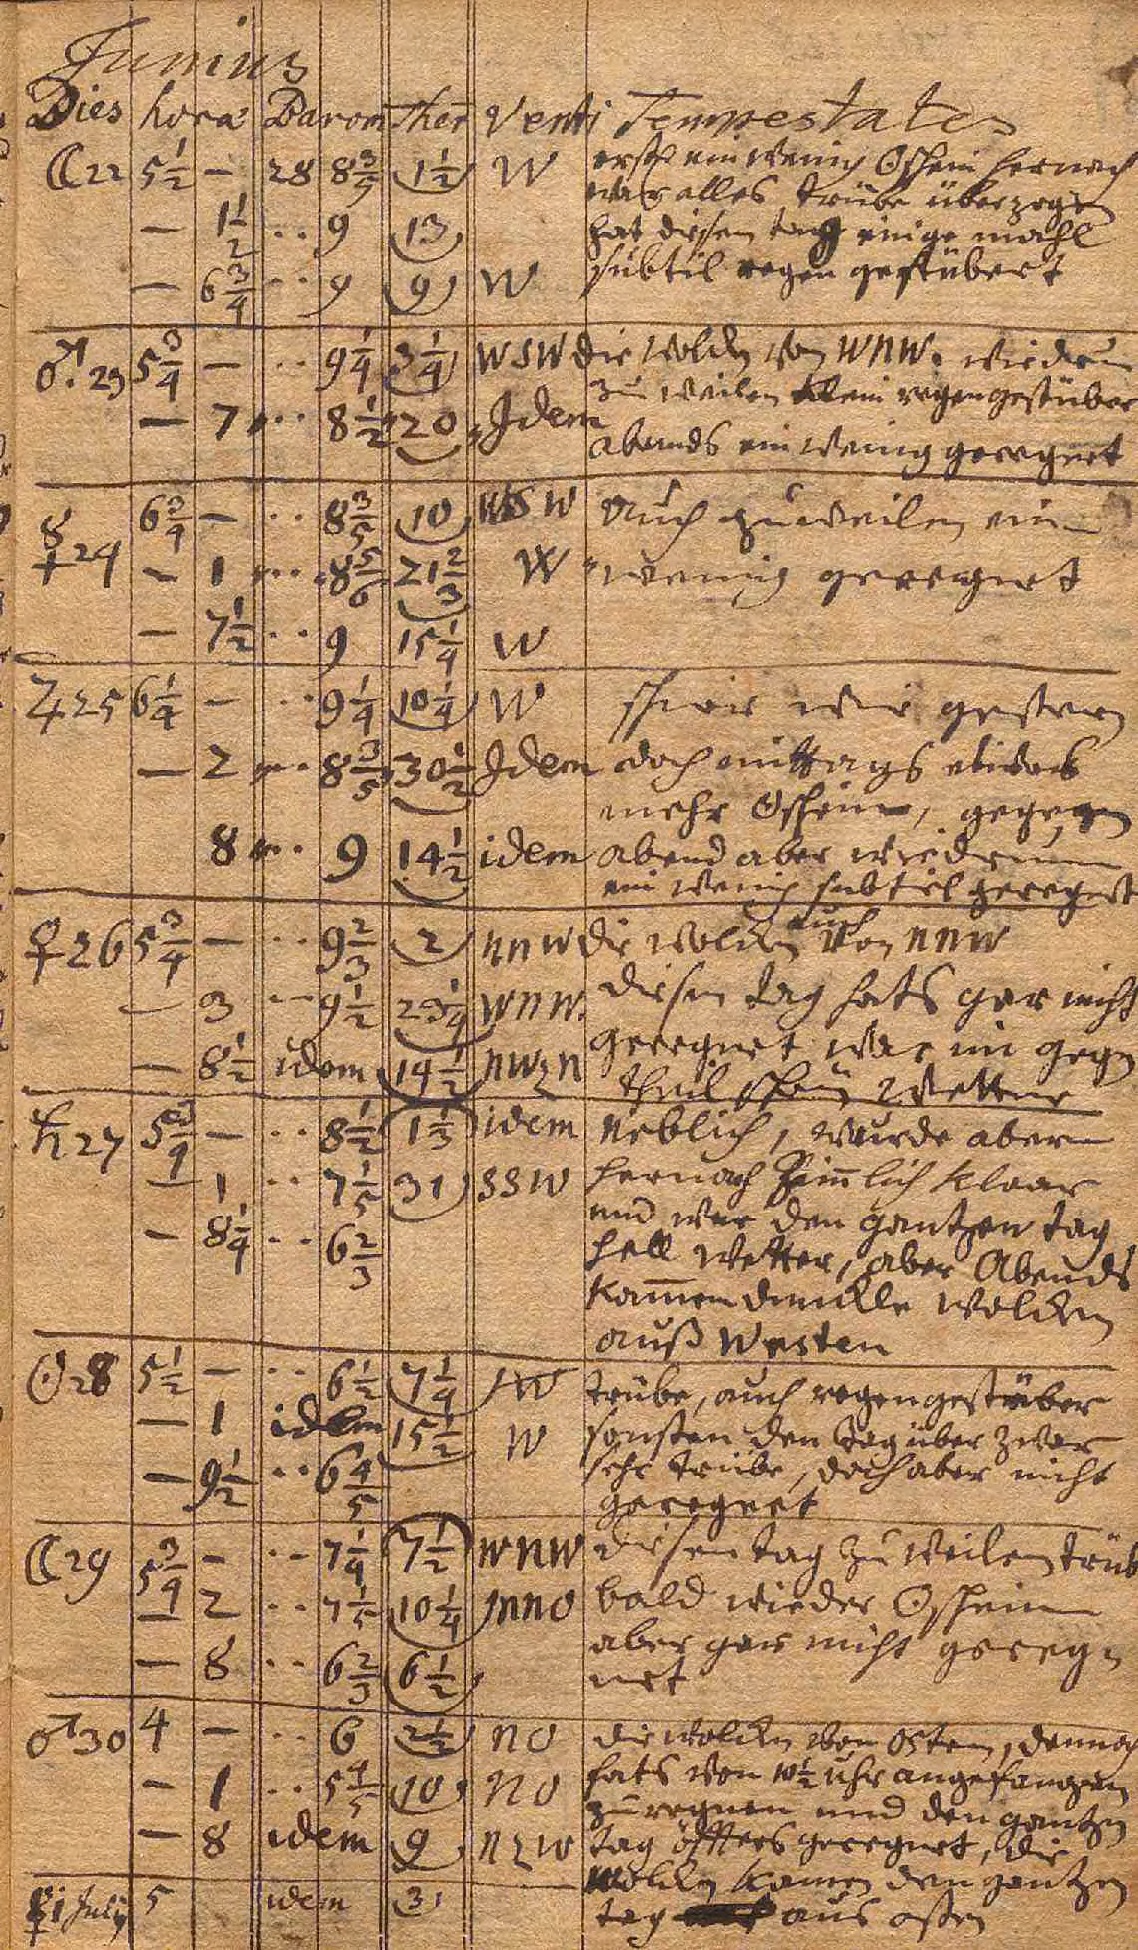 Junius
Dies hora Barom Ther Venti Tempestates
☾ 22 5 1/2 – 28 8 3/5 1 1/2 W erst ein wenig ☉schein hernach
war alles trübe überzogen
– 1 1/2 .. 9 13 hat diesen tag einige mahl
– 6 3/4 .. 9 9 W subtil regen gestübert
♂ 23 5 3/4 – .. 9 1/4 3 1/4 WSW die wolcken von WNW. wiedrum
zu weilen klein regen gestüber
– 7 .. 8 1/2 20 Idem
abends ein wenig geregnet
☿ 24 6 3/4 – .. 8 3/5 10 WSW Auch zuweilen ein
– 1 .. 8 5/6 21 2/3 W wenig geregnet
– 7 1/2 .. 9 15 1/4 W
♃ 25 6 1/4 – .. 9 1/4 10 1/4 W schier wie gestern
– 2 .. 8 3/5 30 1/2 Idem doch mittags etwas
mehr ☉schein, gegen
8 .. 9 14 1/2 idem abend aber wiedrum
ein wenig subtiel geregnet
♀ 26 5 3/4 – .. 9 2/3 2 nnw die wolcken auch von nnw
– 3 .. 9 1/2 23 1/4 WNW. diesen tag hats gar nicht
geregnet war im gegen
– 8 1/2 idem 14 1/2 nwzn
theil schön wetter
♄ 27 5 3/4 – .. 8 1/2 1 1/3 idem neblich, wurde aber
– 1 .. 7 1/5 31 SSW hernach zimlich klaar
und war den gantzen tag
– 8 1/4 .. 6 2/3 hell wetter, aber Abends
kamen dunckle wolcken
auß Westen
☉ 28 5 1/2 – .. 6 1/2 7 1/4 W trübe, auch regengestüber
– 1 idem 15 1/2 W sonsten den tag über zwar
– 9 1/2 .. 6 4/5 sehr trübe, doch aber nicht
geregnet
☾ 29 5 3/4 – .. 7 1/4 7 1/2 WNW diesen tag zu weilen trüb
– 2 .. 7 1/5 10 1/4 NNO bald wieder ☉schein
– 8 .. 6 2/3 6 1/2 aber gar nicht gereg
net
♂ 30 4 – .. 6 2 1/2 NO die wolcken von Osten, dennoch
– 1 .. 5 4/5 10 NO hats von 10 1/2 uhr angefangen
zu regnen und den gantzen
– 8 idem 9 nzw tag öffters geregnet, die
wolcken kamen den gantzen
☿ 1 July 5 idem 3 tag aus osten